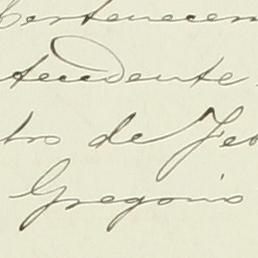 Pertenecen
tecedente
tro de Feb
Gregorio